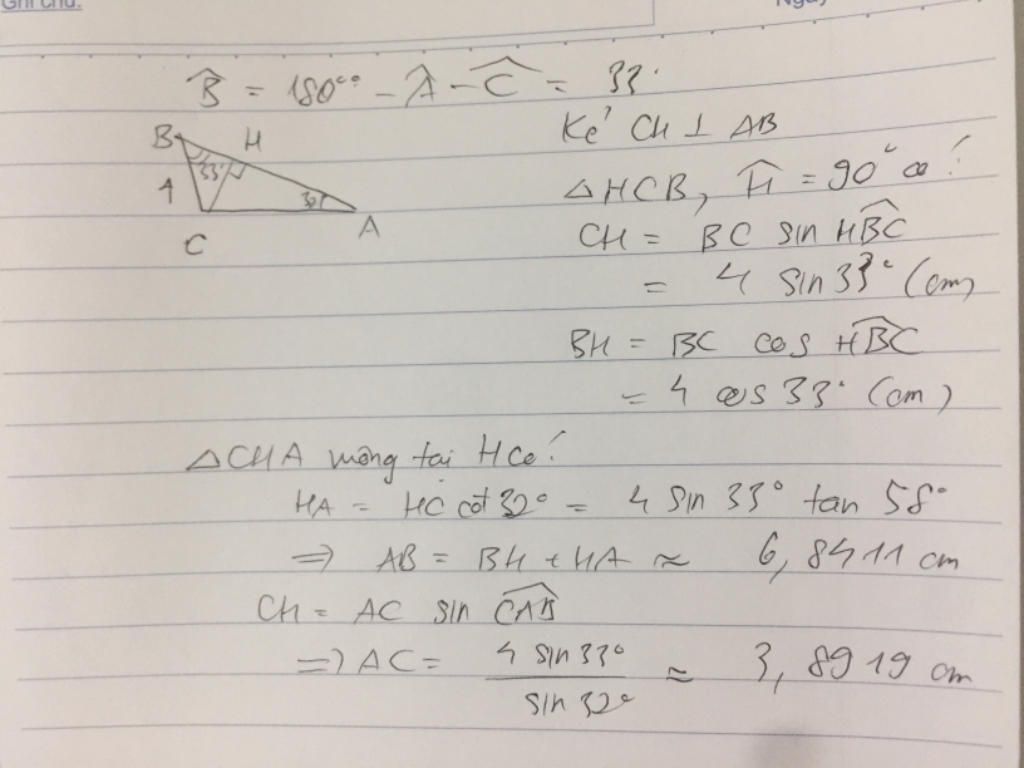 Ghi chú:
Ngày
B̂ = 180° - Â - Ĉ = 33°
Kẻ CH ⊥ AB
B H
33°
4
32°
A
C
△HCB, Ĥ = 90° có:
CH = BC sin HBC
= 4 sin 33° (cm)
BH = BC cos HBC
= 4 cos 33° (cm)
△CHA vuông tại H có:
HA = HC cot 32° = 4 sin 33° tan 58°
=> AB = BH + HA ≈ 6,8411 cm
CH = AC sin CAB
=> AC = 4 sin 33° / sin 32° ≈ 3,8919 cm